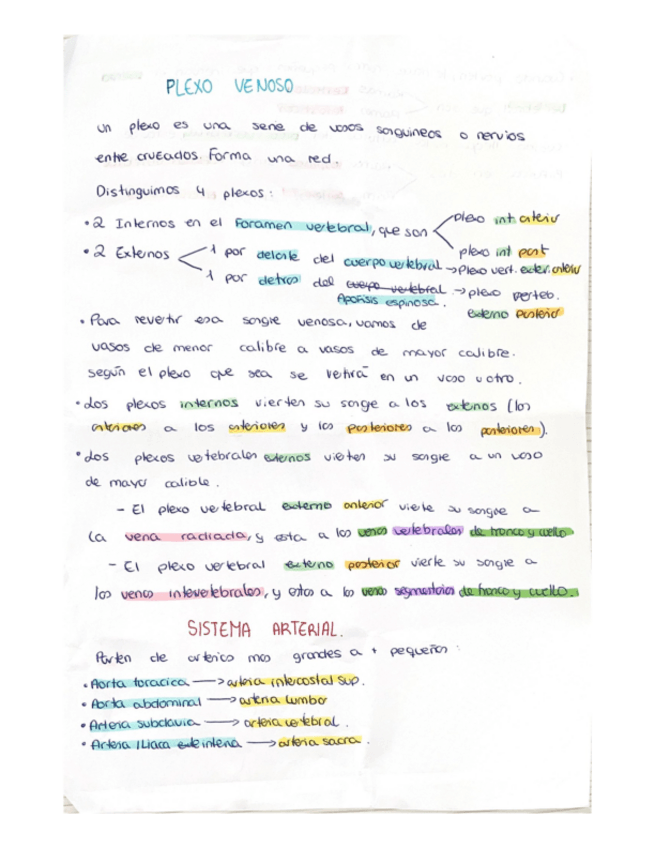 PLEXO VENOSO
un plexo es una serie de vasos sanguineos o nervios
entre cruzados. Forma una red.
Distinguimos 4 plexos:
• 2 Internos en el Foramen vertebral, que son plexo int anterior
plexo int post
• 2 Externos 1 por delante del cuerpo vertebral → Plexo vert. exter. anterior
1 por detras del cuerpo vertebral → plexo verteb.
Apofisis espinosa. externo posterior
• Para revertir esa sangre venosa, vamos de
vasos de menor calibre a vasos de mayor calibre.
según el plexo que sea se retirá en un vaso u otro.
• Los plexos internos vierten su sangre a los externos (los
anteriores a los anteriores y los posteriores a los posteriores).
• Los plexos vertebrales externos vierten su sangre a un vaso
de mayor calibre.
- El plexo vertebral externo anterior vierte su sangre a
la vena radiada, y esta a las venas vertebrales de tronco y cuello
- El plexo vertebral externo posterior vierte su sangre a
las venas intervertebrales, y estas a las venas segmentarias de tronco y cuello.
SISTEMA ARTERIAL.
Parten de arterias mas grandes a + pequeñas:
• Aorta toracica → arteria intercostal sup.
• Aorta abdominal → arteria lumbar
• Arteria subclavia → arteria vertebral.
• Arteria Iliaca → arteria sacra.